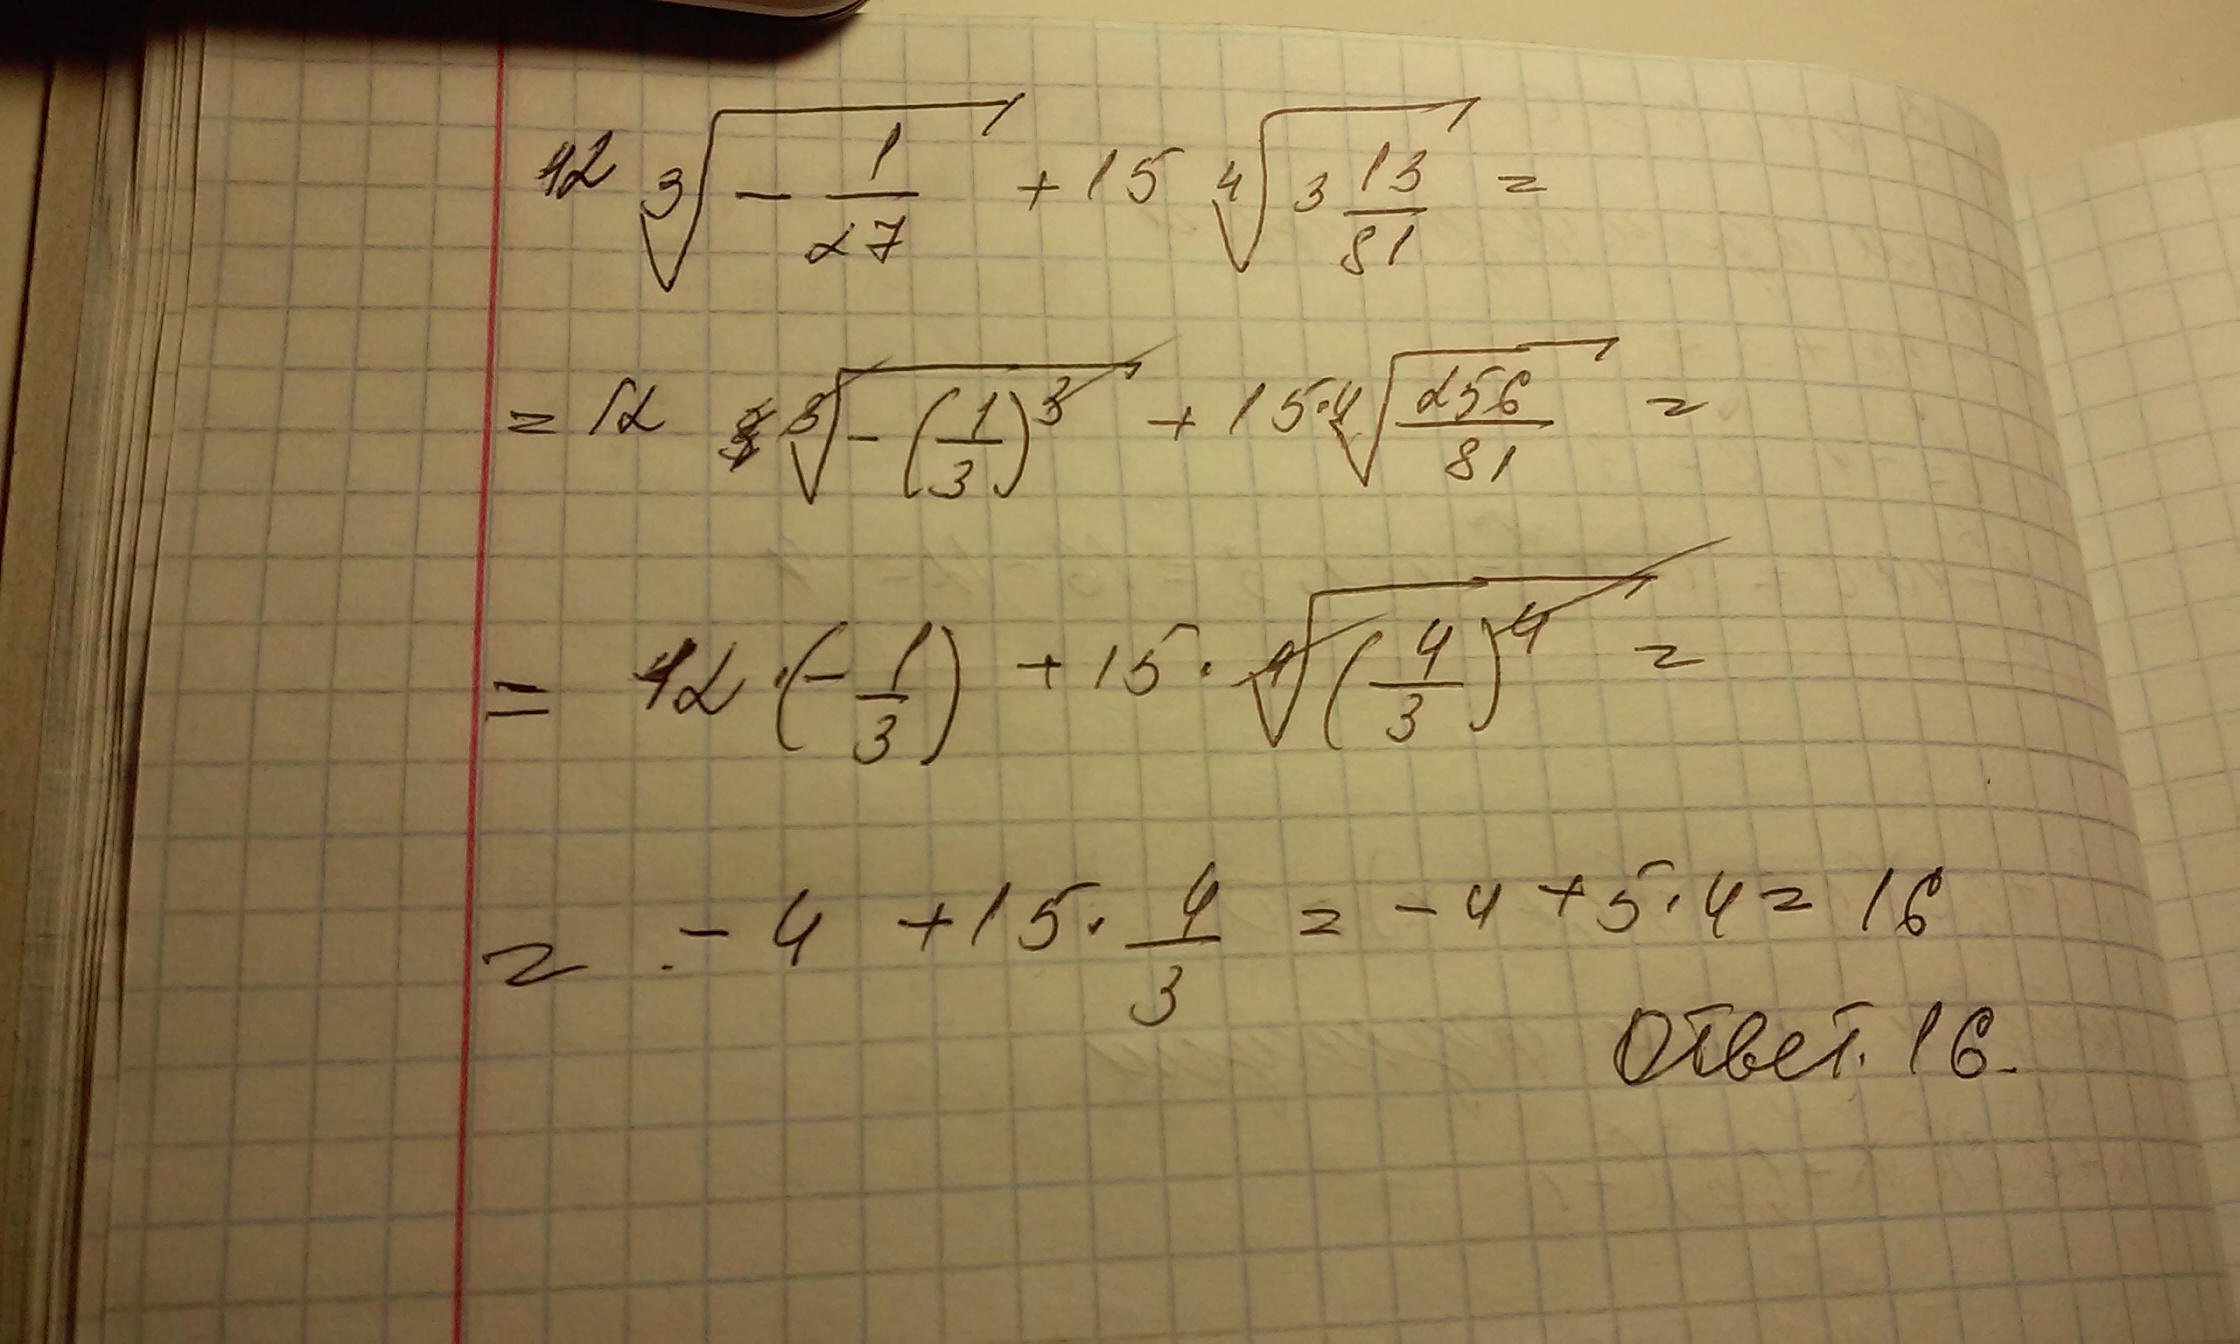 12 ∛(-1/27) + 15 ∜(3 13/81) =
= 12 ∛(-(1/3)³) + 15·∜(256/81) =
= 12·(-1/3) + 15·∜((4/3)⁴) =
= -4 + 15·4/3 = -4 + 5·4 = 16
Ответ. 16.